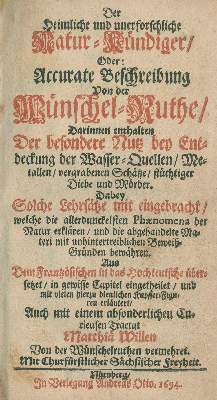 Der
Heimliche und unerforschliche
Natur-Kündiger/
Oder:
Accurate Beschreibung
Von der
Wünschel-Ruthe/
Darinnen enthalten
Der besondere Nutz bey Ent-
deckung der Wasser-Quellen/ Me-
tallen/ vergrabenen Schätze/ flüchtiger
Diebe und Mörder.
Dabey
Solche Lehrsätze mit eingebracht/
welche die allerdunckelsten Phænomena der
Natur erklären/ und die abgehandelte Ma-
teri mit unhintertreiblichen Beweiß-
Gründen bewähren.
Aus
Dem Frantzösischen in das Hochteutsche über-
setzet/ in gewisse Capitel eingetheilet/ und
mit vielen hierzu dienlichen Kupffer-Figu-
ren erläutert/
Auch mit einem absonderlichen Cu-
rieusen Tractat
Matthiä Willen
Von der Wünschelruthen vermehret.
Mit Churfürstlicher Sächsischer Freyheit.
Nürnberg/
In Verlegung Andreas Otto. 1694.